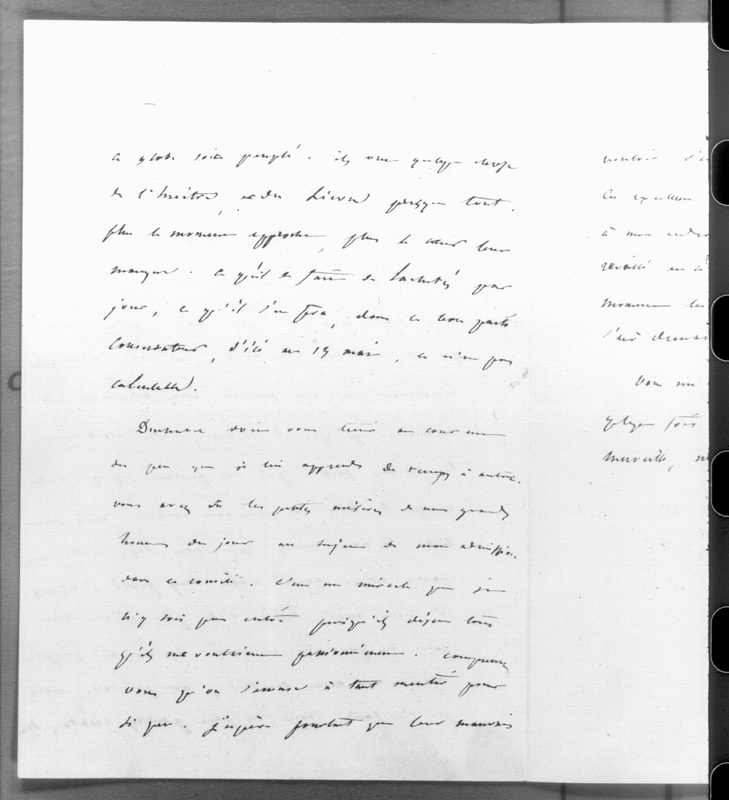 ce globe soit peuplé. ils ont quelque chose
de l'huître, et du lièvre presque tout.
plus le moment approche, plus le cœur leur
manque. ce qu'il se fait de lachetés par
jour, ce qu'il s'en fera, dans ce beau parti
conservateur, d'ici au 14 mai, ce n'est pas
calculable.
doit vous tenir au courant
du peu que je lui apprends de temps à autre.
vous avez su les petites misères de nos grands
hommes du jour au sujet de mon admission
dans ce comité. c'est un miracle que je
n'y sois pas entré puisqu'ils disent tous
qu'ils me voulaient passionnément. comprenez
vous qu'on s'amuse à tant mentir pour
si peu. j'espère pourtant que leur mauvais
vouloir
à mon
moment
Vous
quelque fois
merveille,